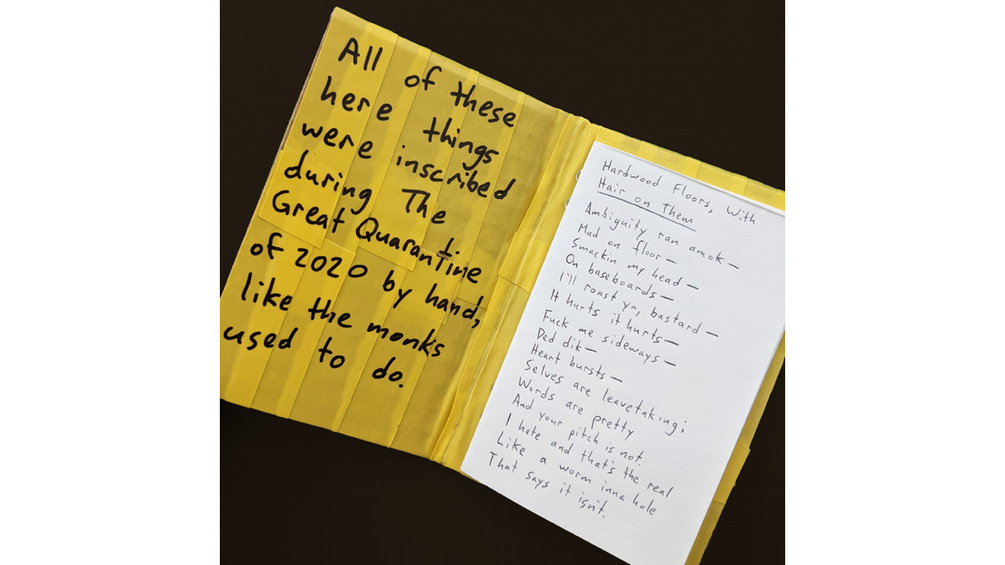 All of these
things here
were inscribed
during The
Great Quarantine
of 2020 by hand,
like the monks
used to do.
Hardwood Floors, With
Hair on Them
Ambiguity ran amok—
Mad on floor—
Smackin my head—
On baseboards—
I'll roast ya, bastard—
It hurts it hurts—
Fuck me sideways—
Ded dik—
Heart bursts—
Selves are leavetaking;
Words are pretty
And your pitch is not.
I hate and that's the real
Like a worm inna hole
That says it isn't.